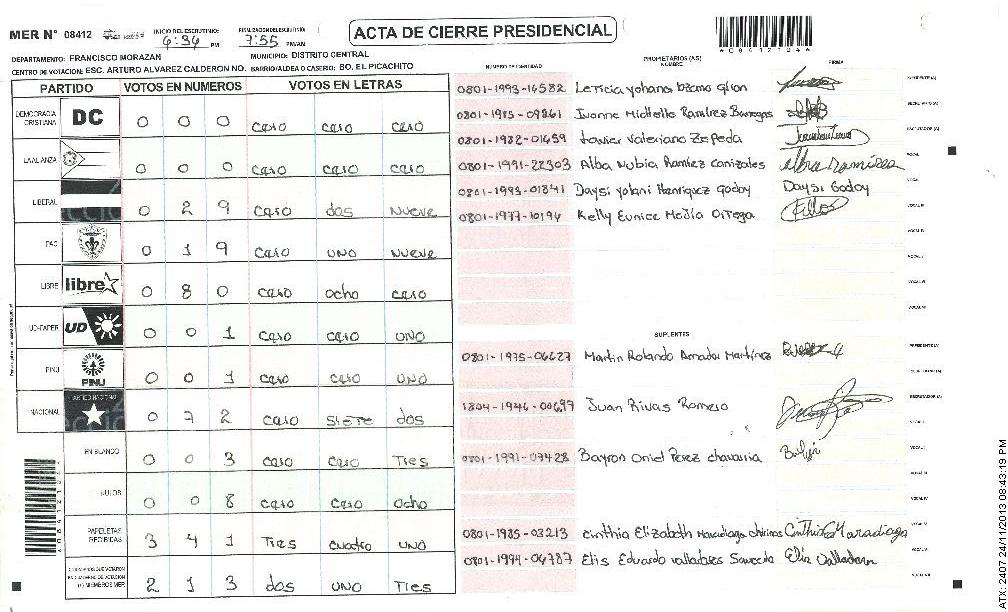 MER N° 08412
INICIO DEL ESCRUTINIO: 6:34 PM
FINALIZACION ESCRUTINIO: 7:55 PM/AM
ACTA DE CIERRE PRESIDENCIAL
DEPARTAMENTO: FRANCISCO MORAZAN MUNICIPIO: DISTRITO CENTRAL
CENTRO DE VOTACION: ESC. ARTURO ALVAREZ CALDERON NO. BARRIO/ALDEA O CASERIO: BO. EL PICACHITO
PARTIDO VOTOS EN NUMEROS VOTOS EN LETRAS
DEMOCRACIA CRISTIANA DC 0 0 0 cero cero cero
LA ALIANZA 0 0 0 cero cero cero
LIBERAL 0 2 9 cero dos nueve
PAC 0 1 9 cero uno nueve
LIBRE libre 0 8 0 cero ocho cero
UD-FAPER UD 0 0 1 cero cero uno
PINU PINU 0 0 1 cero cero uno
NACIONAL 0 7 2 cero siete dos
EN BLANCO 0 0 3 cero cero Tres
NULOS 0 0 8 cero cero ocho
PAPELETAS RECIBIDAS 3 4 1 Tres cuatro uno
CIUDADANOS QUE VOTARON EN CUADERNO DE VOTACION (+) MIEMBROS MER 2 1 3 dos uno Tres
NUMERO DE IDENTIDAD PROPIETARIOS (AS) NOMBRE FIRMA
0801-1993-16582 Leticia yohana
0801-1985-09861 Ivonne Michelle Ramirez
0801-1982-01659 Javier Valeriano Zepeda
0801-1991-22303 Alba Nubia Ramirez Canizales Alba Ramirez
0801-1993-01841 Daysi yolani Henriquez Godoy Daysi Godoy
0801-1977-10194 Kelly Eunice Mejio Ortega
SUPLENTES
0801-1975-06627 Martin Rolando Amador Martinez
1804-1946-00697 Juan Rivas Romero
0801-1991-07428 Bayron Oniel Perez chavarria
0801-1985-03213 cinthia Elizabeth Cinthia Maradiaga
0801-1994-06787 Elis Eduardo valladares
ATX: 2407 24/11/2013 08:43:19 PM